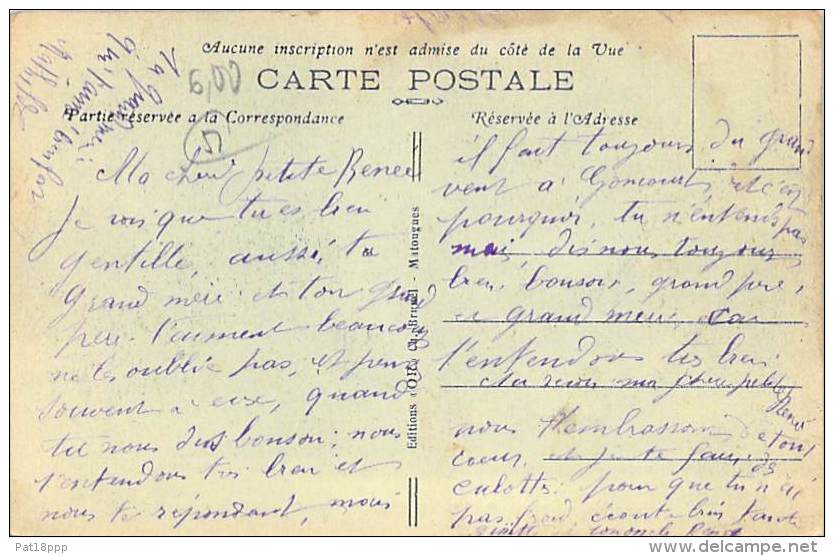 Aucune inscription n'est admise du côté de la Vue
CARTE POSTALE
Partie réservée a la Correspondance
Réservée à l'Adresse
6,00
Ma cheri petite Renée
Je vois que tu es bien
gentille, aussi, ta
Grand mère et ton grand
père t'aiment beaucoup
ne les oublie pas, et pense
souvent à eux, quand
tu nous dis bonsoir; nous
t'entendons très bien et
nous te répondont, mais
Editions "OR" Ch. Brunel - Matougues
il fait toujours du grand
vent à Goncourt, et c'est
pourquoi, tu n'entends pas
mais, dis nous toujours
bien, bonsoir, grand père,
et grand mère, car
t'entendons très bien
Au revoir ma chère petite Renée
nous t'embrassons de tout
coeur, et je te fais des
culotte pour que tu n'ai
pas froid écoute bien
ta Grand mère
qui t'aime bien
Pat18ppp
www.delcampe.net